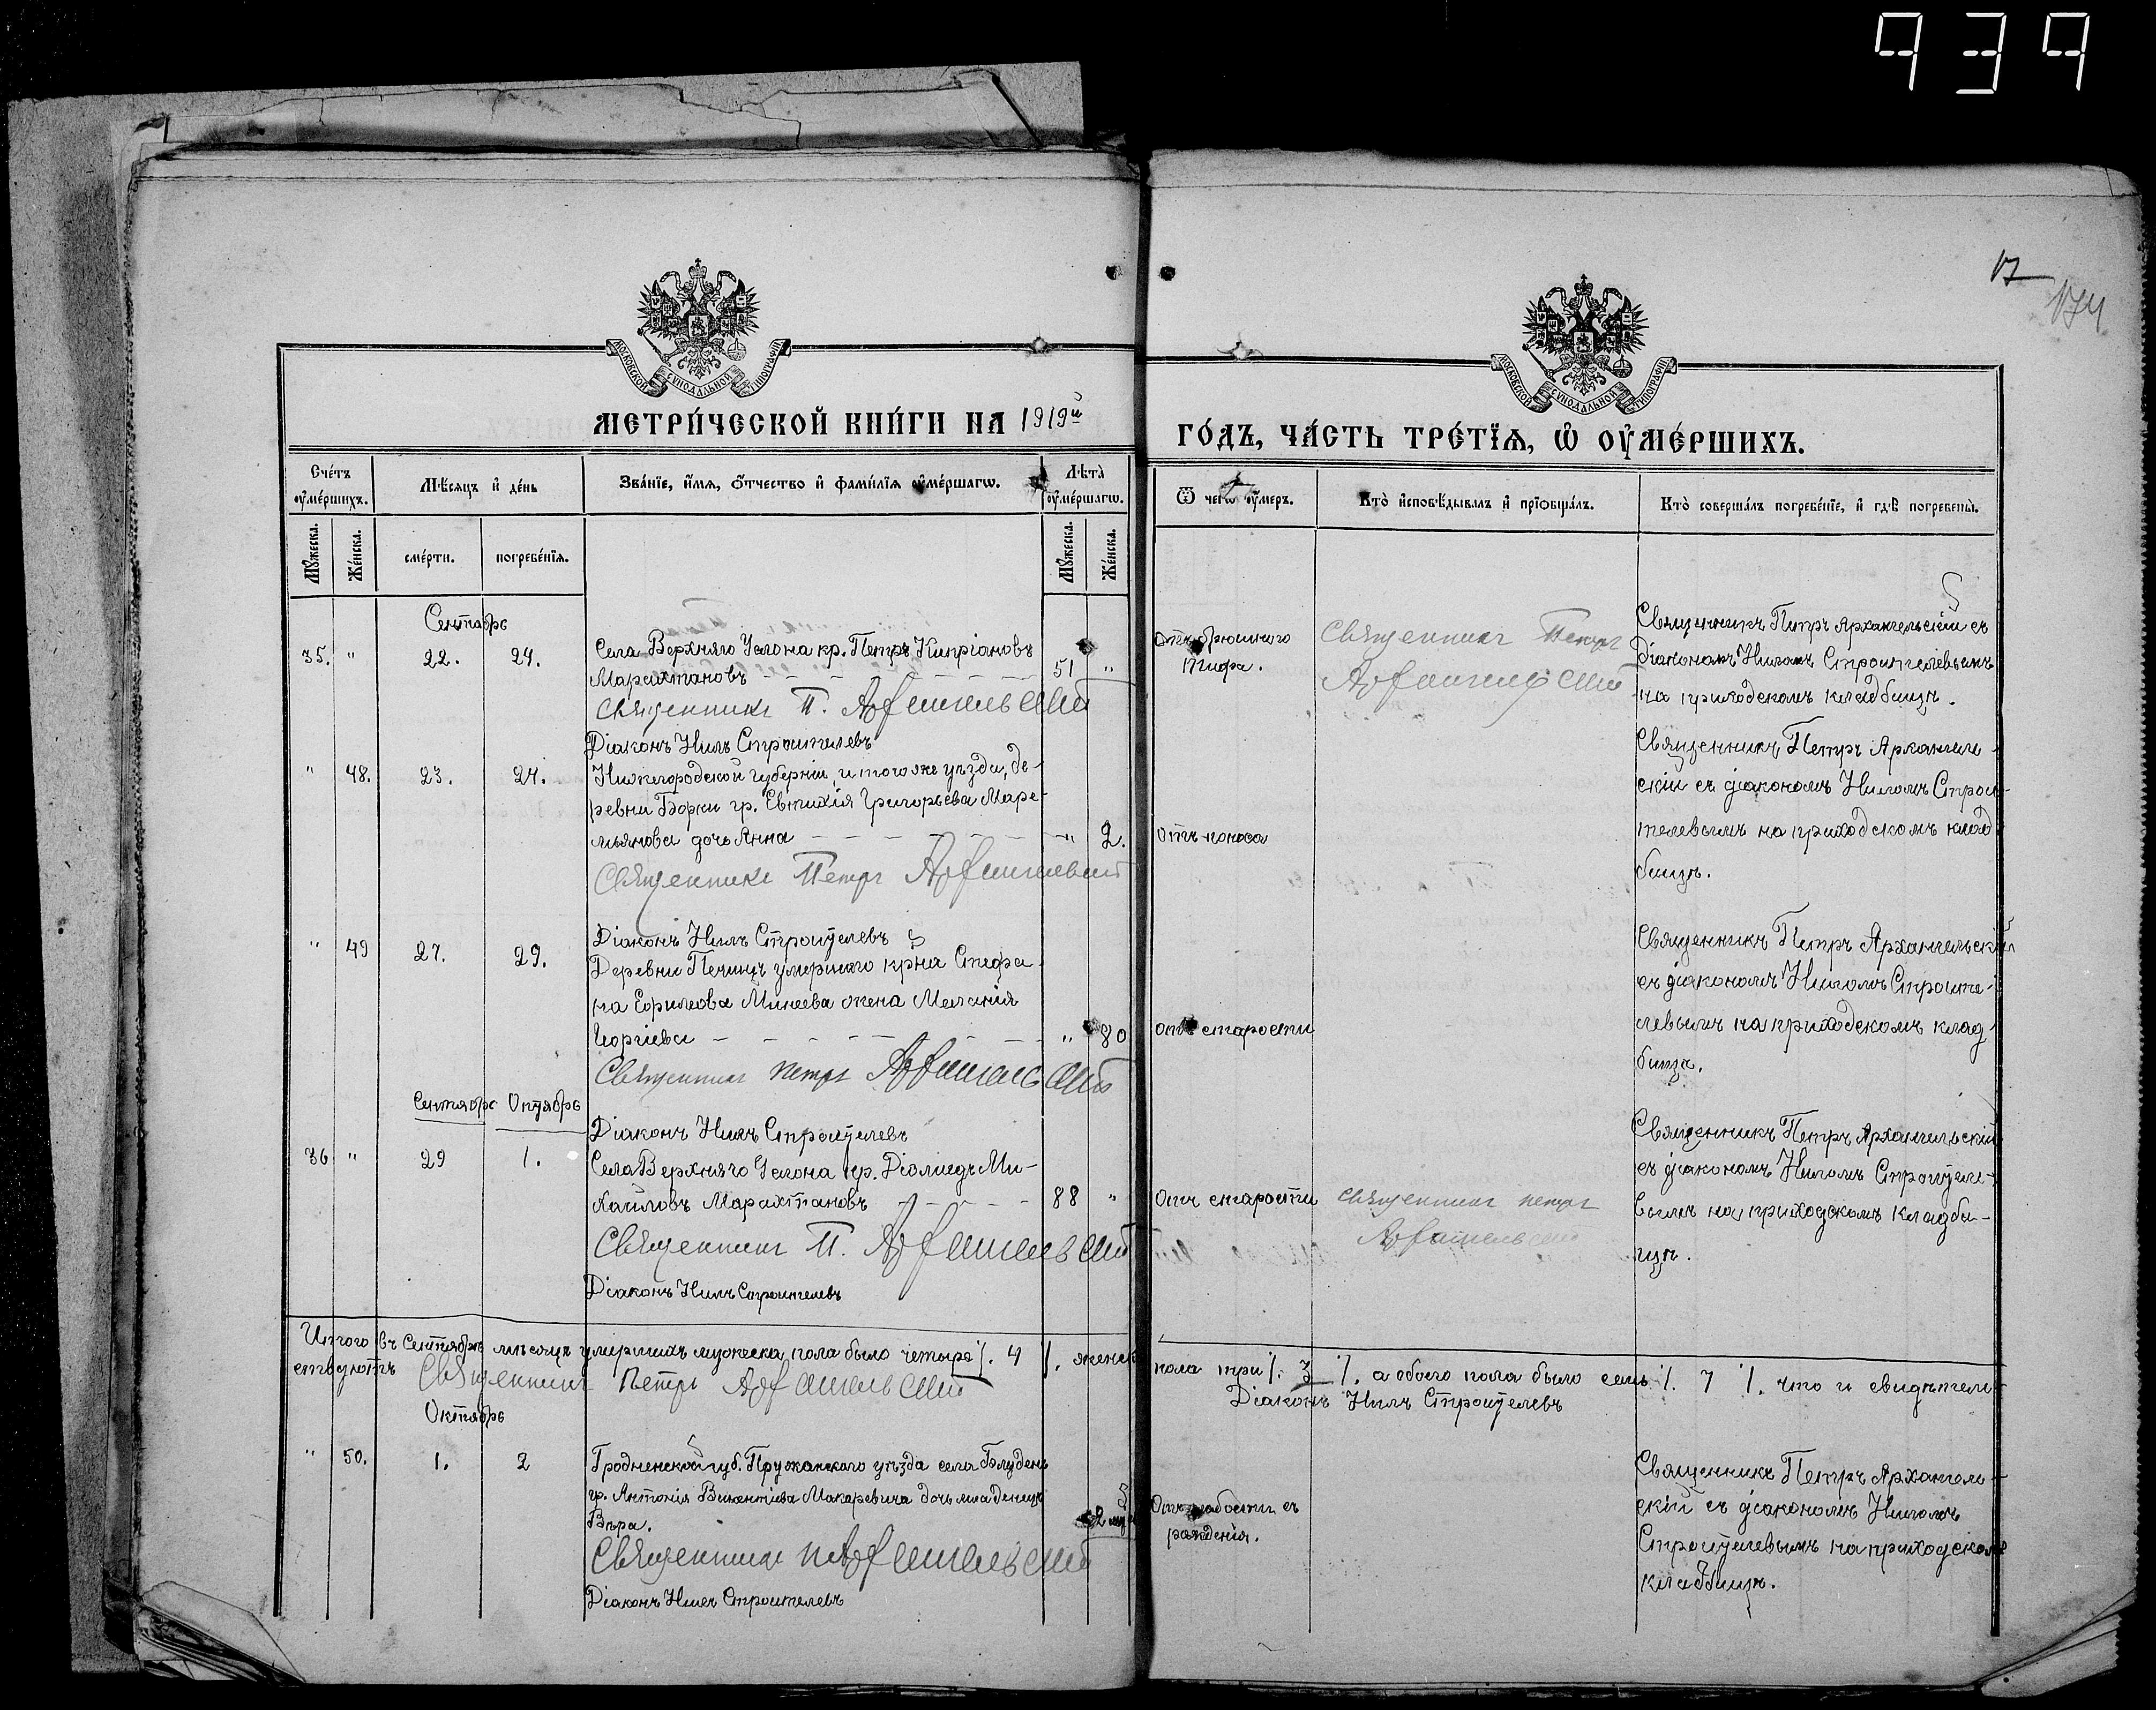 939
17
174
МОСКОВСКОЙ СѴНОДАЛЬНОЙ ТИПОГРАФІИ
МОСКОВСКОЙ СѴНОДАЛЬНОЙ ТИПОГРАФІИ
МЕТРИ́ЧЕСКОЙ КНИ́ГИ НА 1919й
ГО́ДЪ, ЧА́СТЬ ТРЕ́ТІѦ, Ѽ ОУ҆МЕ́РШИХЪ.
Сче́тъ оу҆ме́ршихъ.
Мѣ́сяцъ и҆ де́нь
Зва́нїе, и҆́мѧ, ѻ҆́тчество и҆ фами́лїѧ оу҆ме́ршагѡ.
Лѣ̀та оу҆ме́ршагѡ.
Ѿ чегѡ̀ оу҆́меръ.
Кто̀ и҆сповѣ́дывалъ и҆ прїѡбща́лъ.
Кто̀ соверша́лъ погребе́нїе, и҆ гдѣ̀ погребены̀.
Мꙋ́жеска.
Же́нска.
сме́рти.
погребе́нїѧ.
Мꙋ́жеска.
Же́нска.
Сентябрь
35. " 22. 24.
Села Верхняго Услона кр. Петръ Кипріановъ
Марахтановъ 51 "
Священникъ П. Архангельскій
Діаконъ Нилъ Строителевъ
Отъ брюшного
тифа.
Священникъ Петръ
Архангельскій
Священникъ Петръ Архангельскій съ
діакономъ Ниломъ Строителевымъ
на приходскомъ кладбищѣ.
" 48. 23. 24.
Нижегородской губерніи, и того же уѣзда, де-
ревни Борки гр. Евтихія Григорьева Маре-
мьянова дочь Анна " 2.
Священникъ Петръ Архангельскій
Діаконъ Нилъ Строителевъ
Отъ поноса
Священникъ Петръ Архангель-
скій съ діакономъ Ниломъ Строи-
телевымъ на приходскомъ клад-
бищѣ.
" 49 27. 29.
Деревни Печищъ умершаго кр-на Стефа-
на Ефимова Минеева жена Меланія
Георгіева " 80
Священникъ Петръ Архангельскій
Діаконъ Нилъ Строителевъ
Отъ старости
Священникъ Петръ Архангельскій
съ діакономъ Ниломъ Строите-
левымъ на приходскомъ клад-
бищѣ.
Сентябрь Октябрь
36 " 29 1.
Села Верхняго Услона кр. Діомидъ Ми-
хайловъ Марахтановъ 88 "
Священникъ П. Архангельскій
Діаконъ Нилъ Строителевъ
Отъ старости
Священникъ Петръ
Архангельскій
Священникъ Петръ Архангельскій
съ діакономъ Ниломъ Строителе-
вымъ на приходскомъ кладби-
щѣ.
Итого въ Сентябрѣ мѣсяцѣ умершихъ мужеска пола было четыре ⁒. 4 ⁒. женск. пола три ⁒. 3 ⁒. а обоего пола было семь ⁒. 7 ⁒. что и свидѣтель-
ствуютъ Священникъ Петръ Архангельскій Діаконъ Нилъ Строителевъ
Октябрь
" 50. 1. 2
Гродненской губ. Пружанскаго уѣзда села Блудень
гр. Антонія Викентіева Макаревича дочь младенецъ
Вѣра.
Священникъ П. Архангельскій
Діаконъ Нилъ Строителевъ
Отъ слабости съ
рожденія.
Священникъ Петръ Архангель-
скій съ діакономъ Ниломъ
Строителевымъ на приходскомъ
кладбищѣ.